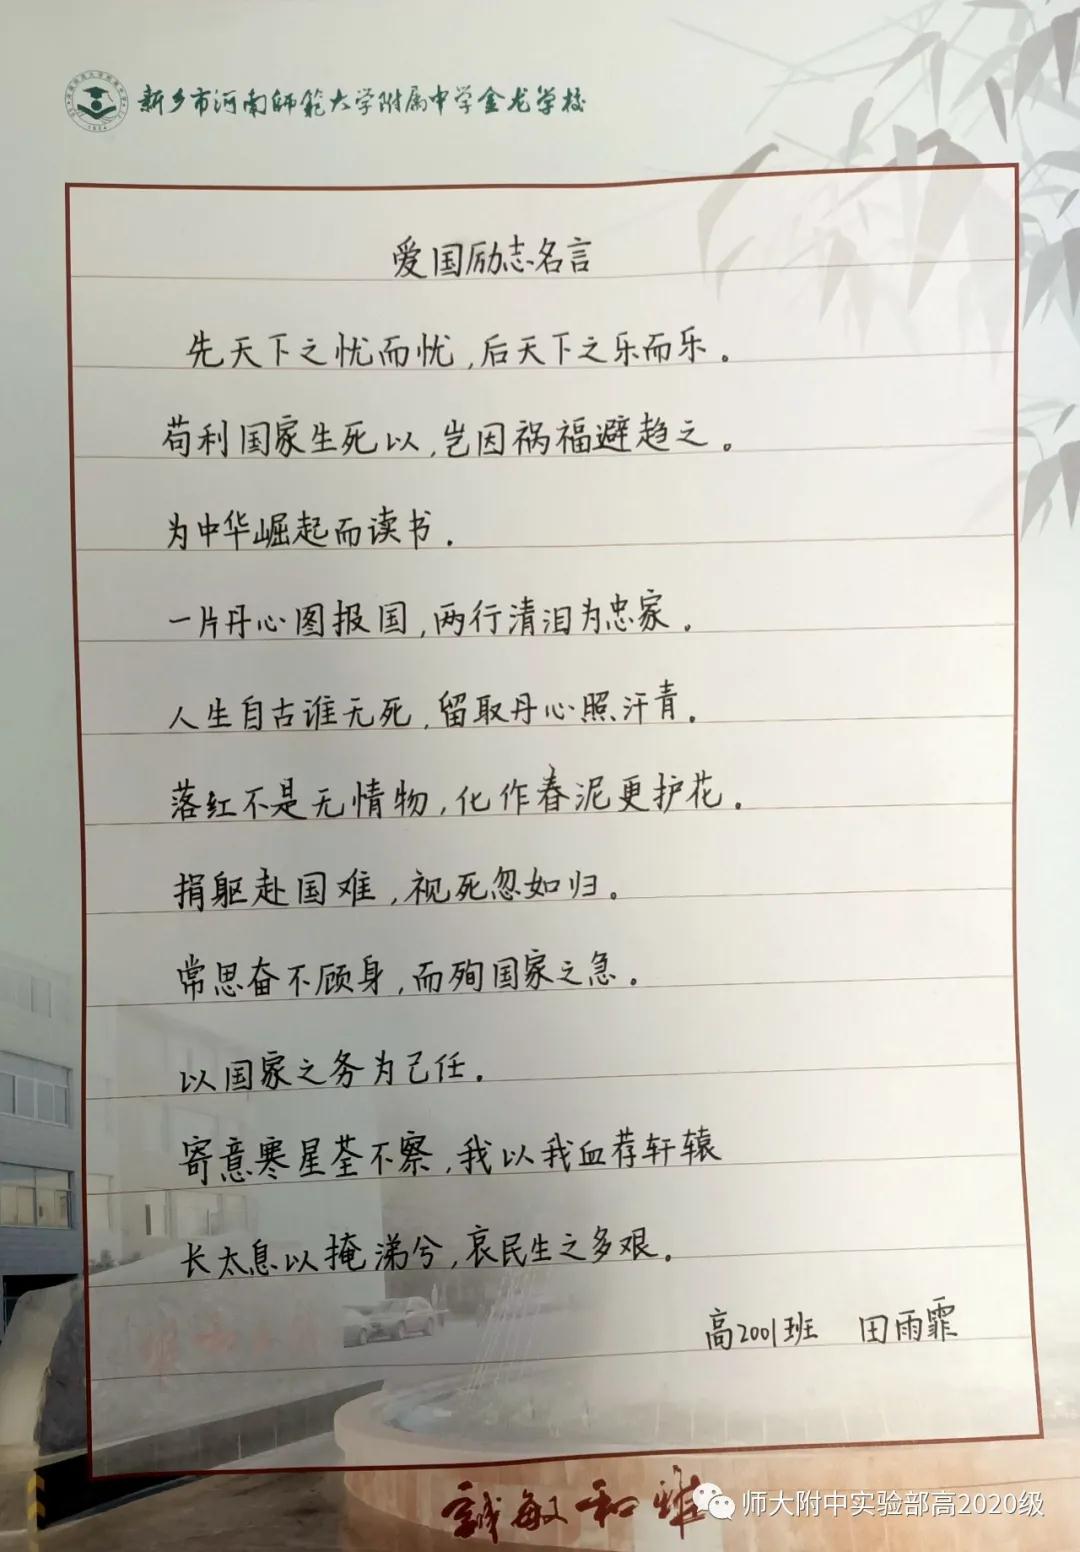 新乡市河南师范大学附属中学金龙学校
爱国励志名言
先天下之忧而忧,后天下之乐而乐。
苟利国家生死以,岂因祸福避趋之。
为中华崛起而读书.
一片丹心图报国,两行清泪为忠家。
人生自古谁无死,留取丹心照汗青.
落红不是无情物,化作春泥更护花.
捐躯赴国难,视死忽如归。
常思奋不顾身,而殉国家之急。
以国家之务为己任.
寄意寒星荃不察,我以我血荐轩辕
长太息以掩涕兮,哀民生之多艰.
高2001班 田雨霏
誠敏和雅
师大附中实验部高2020级